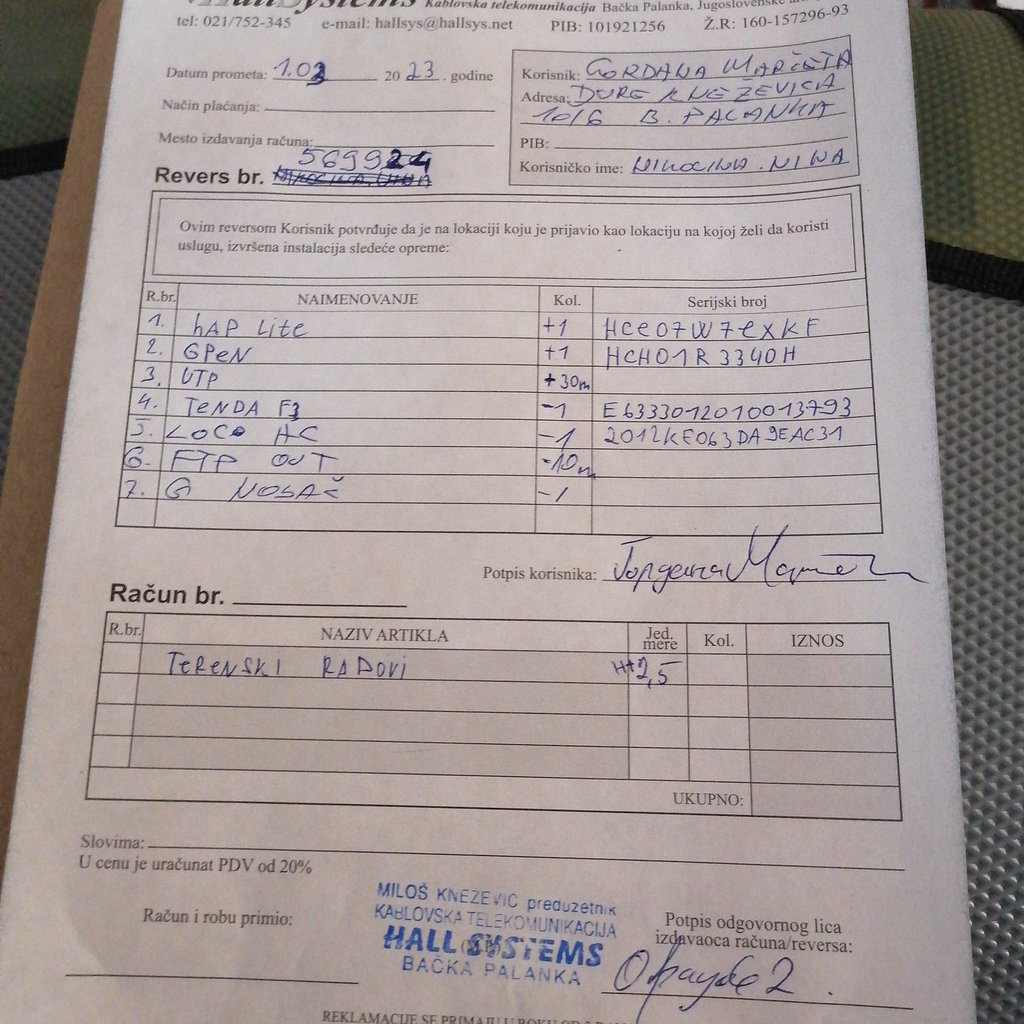 HallSystems Kablovska telekomunikacija Bačka Palanka, Jugoslovenske
tel: 021/752-345 e-mail: hallsys@hallsys.net PIB: 101921256 Ž.R: 160-157296-93
Datum prometa: 1.03 2023. godine
Način plaćanja:
Mesto izdavanja računa:
Revers br. 569924
Korisnik: GORDANA MARČETA
Adresa: ĐURE KNEŽEVIĆA
10/6 B. PALANKA
PIB:
Korisničko ime: NIKOLINA.NINA
Ovim reversom Korisnik potvrđuje da je na lokaciji koju je prijavio kao lokaciju na kojoj želi da koristi
uslugu, izvršena instalacija sledeće opreme:
R.br. NAIMENOVANJE Kol. Serijski broj
1. hAP Lite +1 HCE07W7EXKF
2. GPeN +1 HCH01R3340H
3. UTP +30m
4. TENDA F3 -1 E6333012010013793
5. LOCO AC -1 2012KE063DA9EAC31
6. FTP OUT -10m
7. G NOSAČ -1
Potpis korisnika:
Račun br.
R.br. NAZIV ARTIKLA Jed. mere Kol. IZNOS
TERENSKI RADOVI H+2,5
UKUPNO:
Slovima:
U cenu je uračunat PDV od 20%
Račun i robu primio:
MILOŠ KNEŽEVIĆ preduzetnik
KABLOVSKA TELEKOMUNIKACIJA
HALL SYSTEMS
BAČKA PALANKA
Potpis odgovornog lica
izdavaoca računa/reversa:
REKLAMACIJE SE PRIMAJU U ROKU OD